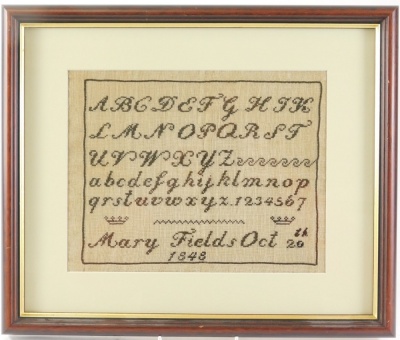 ABCDEFGHIJK
LMNOPQRST
UVWXYZ
abcdefghijklmnop
qrstuvwxyz.1234567
Mary Fields Oct 20th
1848